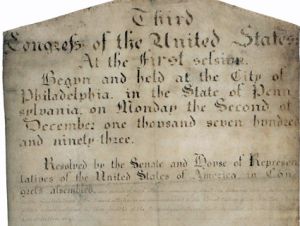 Third
Congress of the United States
At the first session,
Begun and held at the City of
Philadelphia, in the State of Penn
sylvania, on Monday the Second of
December one thousand seven hundred
and ninety-three.
Resolved by the Senate and House of Represen
tatives of the United States of America in Con
gress assembled,